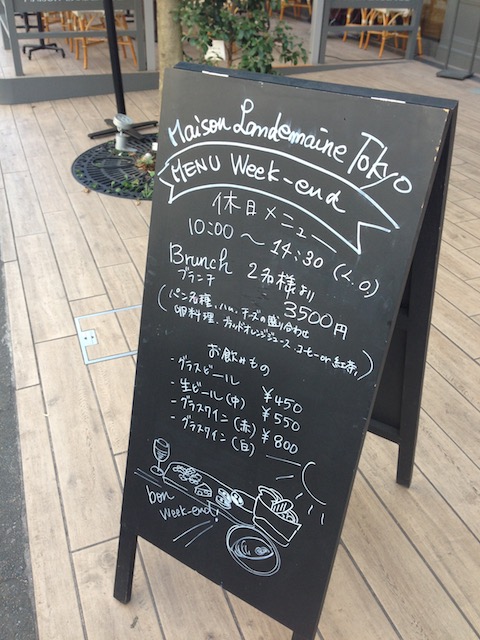 Maison Landemaine Tokyo
MENU Week-end
休日メニュー
10:00〜14:30 (L.O)
Brunch 2名様より
ブランチ 3500円
(パン各種、ハム、チーズの盛り合わせ
卵料理、ブラッドオレンジジュース、コーヒー or 紅茶)
お飲みもの
・グラスビール ¥450
・生ビール(中) ¥550
・グラスワイン(赤) ¥800
・グラスワイン(白)
bon
week-end!